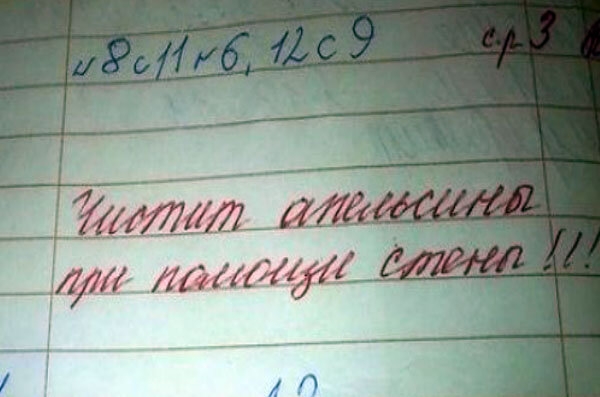 №8 с11 №6, 12 с9 с.р 3
Чистит апельсины
при помощи стены!!!